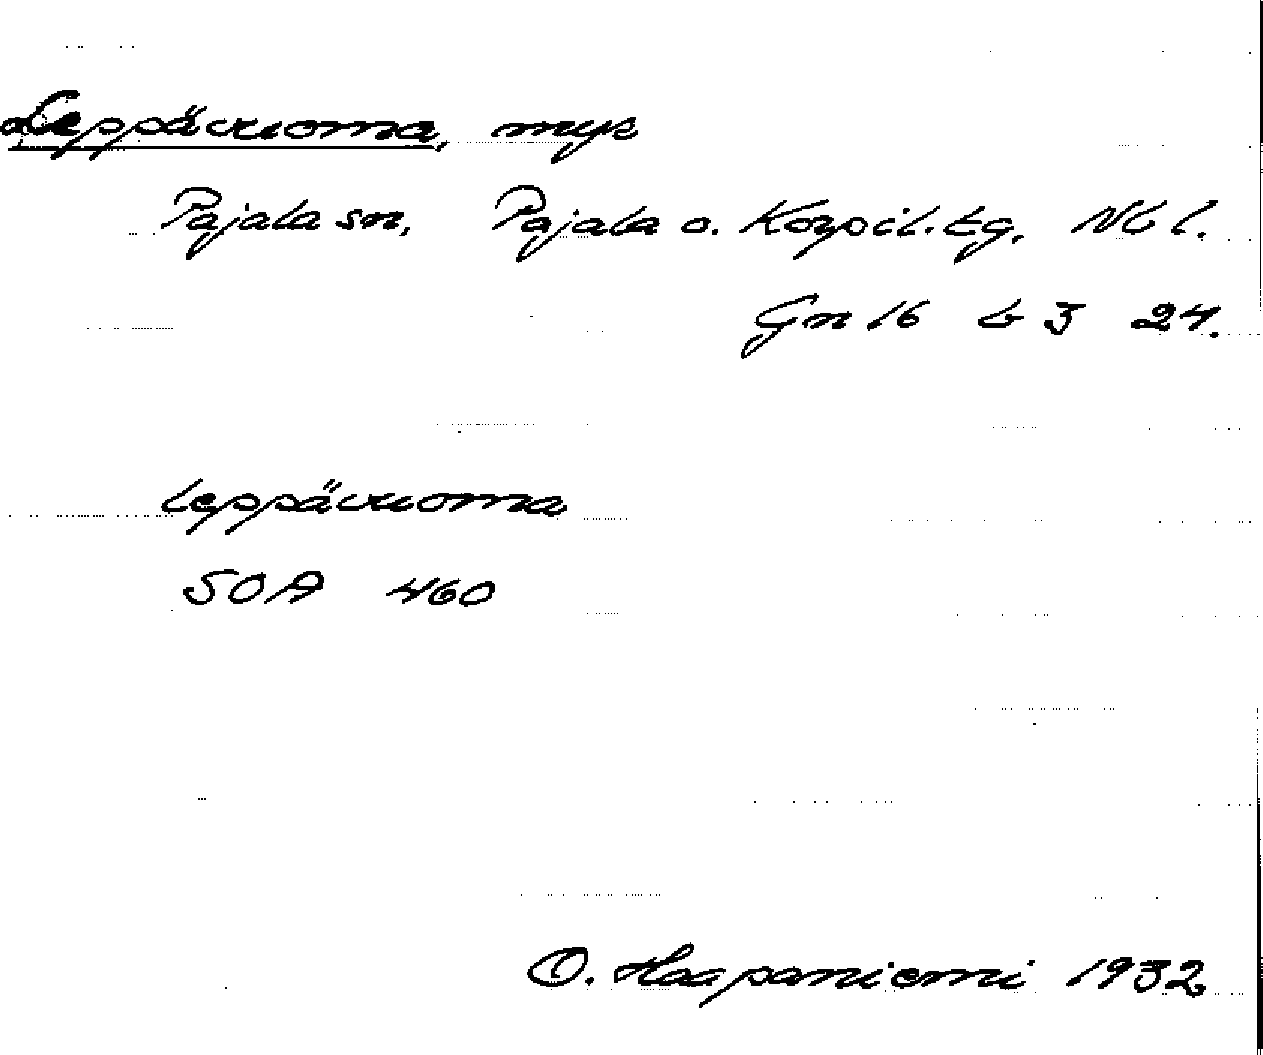 Leppävuoma, myr
Pajala sn, Pajala o. Korpil. tg, Nb l.
Gn 16 b 3 24.
Leppävuoma
SOA 460
O. Haapaniemi 1932